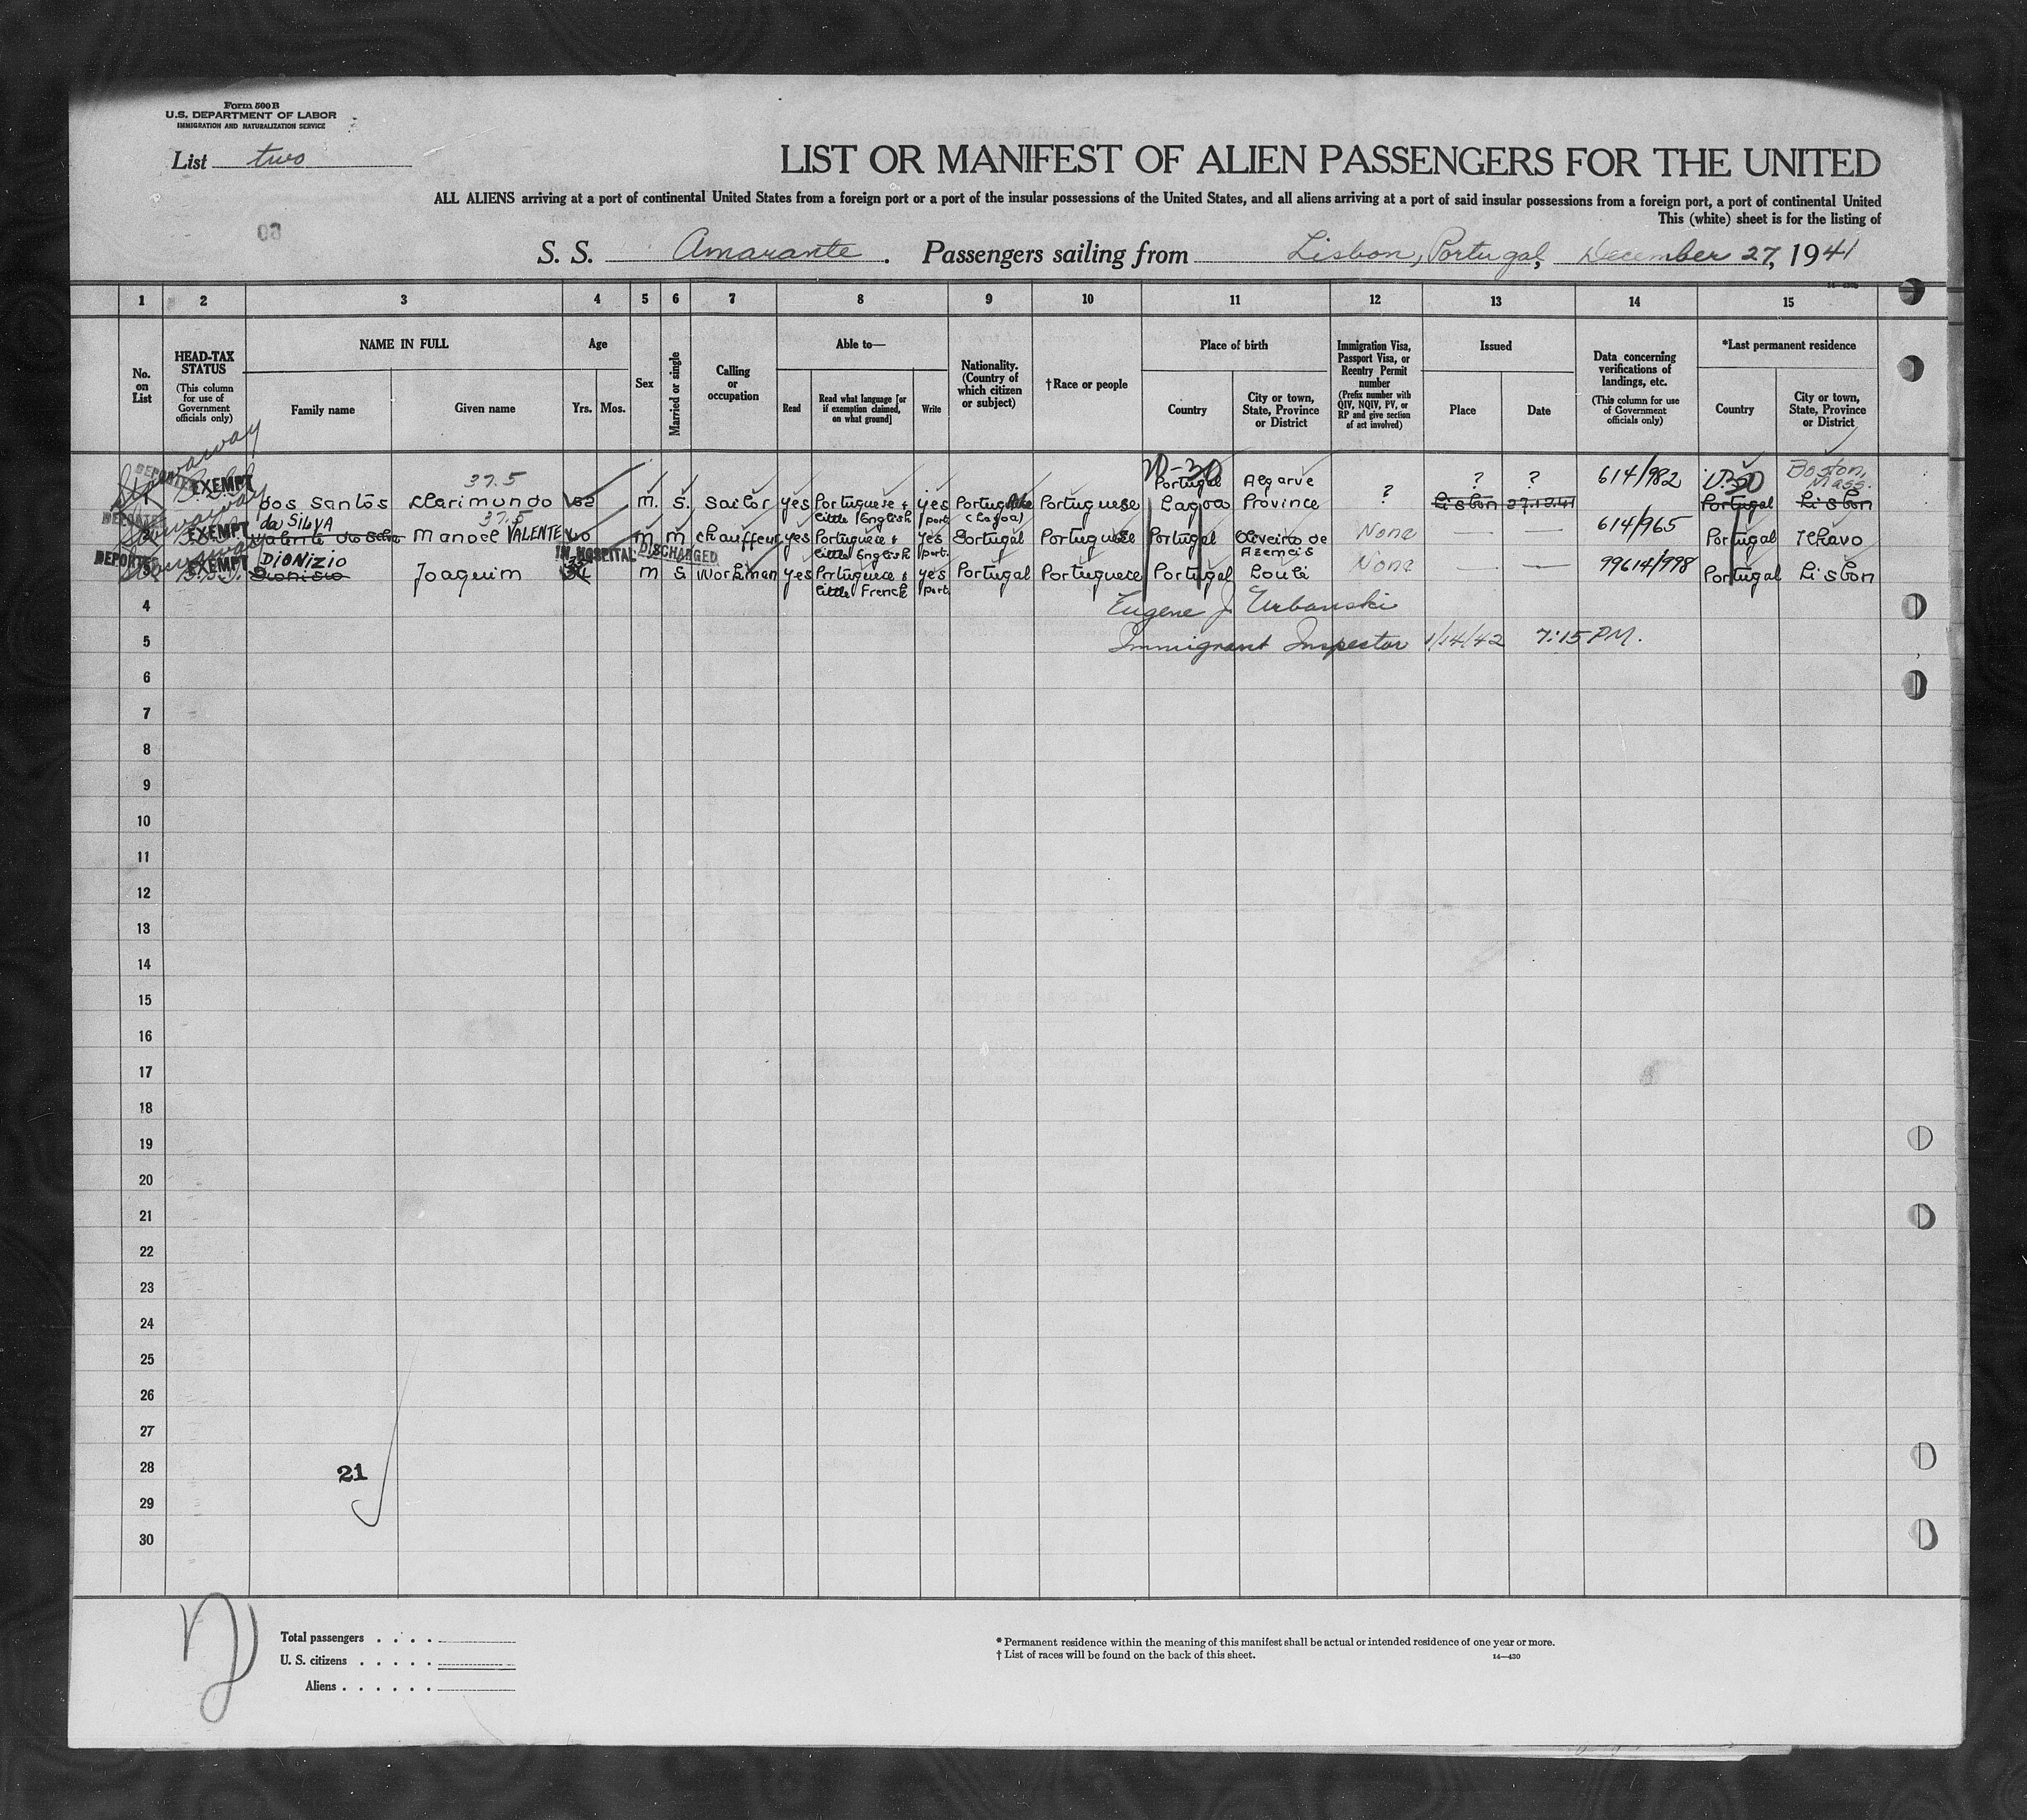 Form 500B
U.S. DEPARTMENT OF LABOR
IMMIGRATION AND NATURALIZATION SERVICE
List two
LIST OR MANIFEST OF ALIEN PASSENGERS FOR THE UNITED
ALL ALIENS arriving at a port of continental United States from a foreign port or a port of the insular possessions of the United States, and all aliens arriving at a port of said insular possessions from a foreign port, a port of continental United
This (white) sheet is for the listing of
S. S. Amarante. Passengers sailing from Lisbon, Portugal, December 27, 1941
1 2 3 4 5 6 7 8 9 10 11 12 13 14 15
No. on List
HEAD-TAX STATUS
(This column for use of Government officials only)
NAME IN FULL
Family name
Given name
Age
Yrs. Mos.
Sex
Married or single
Calling or occupation
Able to—
Read
Read what language [or if exemption claimed, on what ground]
Write
Nationality. (Country of which citizen or subject)
†Race or people
Place of birth
Country
City or town, State, Province or District
Immigration Visa, Passport Visa, or Reentry Permit number
(Prefix number with QIV, NQIV, PV, or RP and give section of act involved)
Issued
Place
Date
Data concerning verifications of landings, etc.
(This column for use of Government officials only)
*Last permanent residence
Country
City or town, State, Province or District
Stowaway
37.5 Portugal Algarve ? ? 614/982 Boston, Mass.
EXEMPT dos Santos Clarimundo m. S. Sailor yes Portuguese & little English yes port. Portuguese Lagoa Province ? Lisbon 27.12.41 Portugal Lisbon
(Lagoa)
37.5
EXEMPT da SILVA Valente da Silva Manoel VALENTE m m chauffeur yes Portuguese & little English yes port. Portugal Portuguese Portugal Oliveira de Azemeis None — — 614/965 Portugal Ilhavo
IN HOSPITAL DISCHARGED
DEPORTED EXEMPT DIONIZIO Dionisio Joaquim m S Workman yes Portuguese & little French yes port. Portugal Portuguese Portugal Loulé None — — 99614/998 Portugal Lisbon
4 Eugene J. Urbanski
5 Immigrant Inspector 1/14/42 7:15 PM.
6
7
8
9
10
11
12
13
14
15
16
17
18
19
20
21
22
23
24
25
26
27
28
21
29
30
Total passengers . . . .
U. S. citizens . . . . .
Aliens . . . . . .
* Permanent residence within the meaning of this manifest shall be actual or intended residence of one year or more.
† List of races will be found on the back of this sheet.
14—430